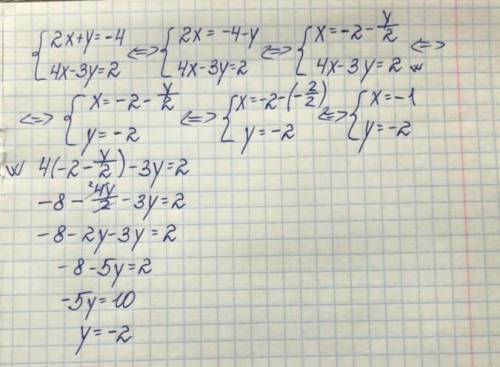 {2x+y=-4 <=> {2x=-4-y <=> {x=-2-y/2 <=>
{4x-3y=2 {4x-3y=2 {4x-3y=2 w
<=> {x=-2-y/2 <=> {x=-2-(-2/2) <=> {x=-1
{y=-2 {y=-2 {y=-2
w 4(-2-y/2)-3y=2
-8-²4y/2-3y=2
-8-2y-3y=2
-8-5y=2
-5y=10
y=-2